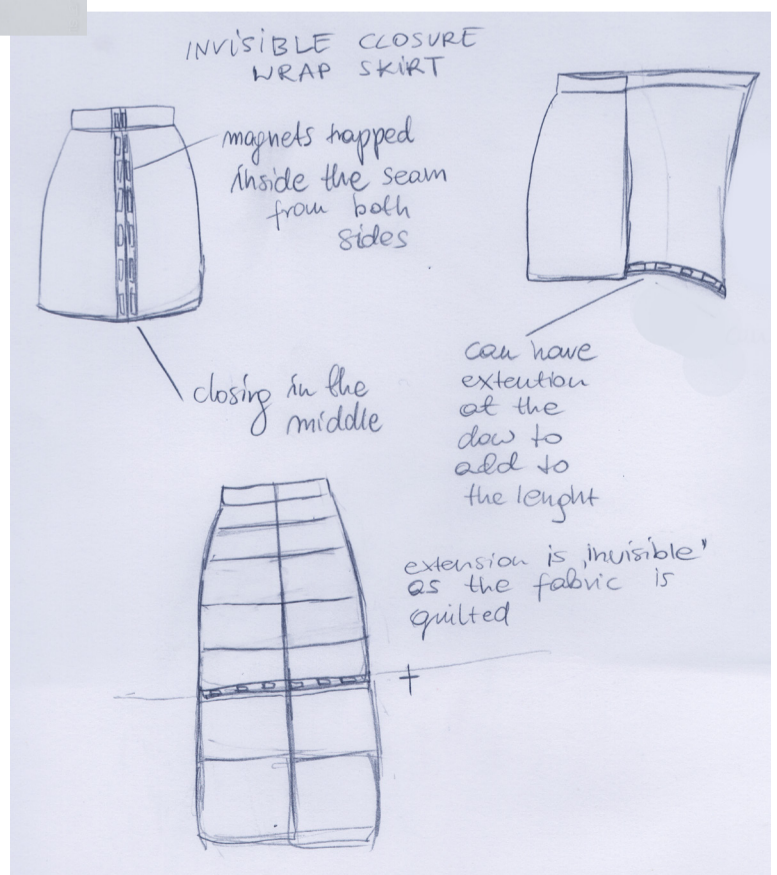 INVISIBLE CLOSURE
WRAP SKIRT
magnets trapped
inside the seam
from both
sides
closing in the
middle
can have
extention
at the
dow to
add to
the lenght
extension is ,invisible'
as the fabric is
quilted
+